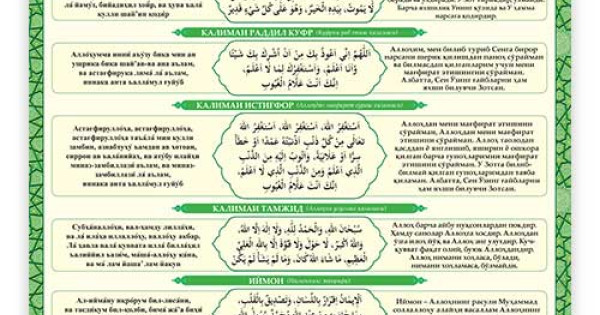 лá йамýт, бийадиҳил хойр, ва ҳува ъалá
кулли шайъин қодúр
لَا يَمُوتُ، بِيَدِهِ الْخَيْرُ، وَهُوَ عَلَى كُلِّ شَيْءٍ قَدِيرٌ
Барча яхшилик Унинг қўлида ва У ҳамма
нарсага қодирдир.
КАЛИМАИ РАДДИЛ КУФР
Аллоҳумма иннú аъýзу бика мин ан
ушрика бика шай'ан-ва ана аълам,
ва астағфирука лимá лá аълам,
иннака анта ъаллáмул ғуйýб
اللَّهُمَّ إِنِّي أَعُوذُ بِكَ مِنْ أَنْ أُشْرِكَ بِكَ شَيْئًا
وَأَنَا أَعْلَمُ، وَأَسْتَغْفِرُكَ لِمَا لَا أَعْلَمُ،
إِنَّكَ أَنْتَ عَلَّامُ الْغُيُوبِ
Аллоҳим, мен билиб туриб Сенга бирор
нарсани шерик қилишдан паноҳ сўрайман
ва билмасдан қилганларим учун мени
мағфират этишингни сўрайман.
Албатта, Сен ўзинг ғайбларни ҳам
яхши билувчи Зотсан.
КАЛИМАИ ИСТИҒФОР
Астағфируллóҳа, астағфируллóҳа,
астағфируллóҳа таъáлá мин кулли
замбин, азнабтуҳý ъамдан ав хотоан,
сиррон ав ъалáнийаҳ, ва атýбу илайҳи
миназ-замбиллазú аълам, ва миназ-
замбиллазú лá аълам,
иннака анта ъаллáмул ғуйýб
أَسْتَغْفِرُ اللَّهَ، أَسْتَغْفِرُ اللَّهَ، أَسْتَغْفِرُ اللَّهَ
تَعَالَى مِنْ كُلِّ ذَنْبٍ أَذْنَبْتُهُ عَمْدًا أَوْ خَطَأً
سِرًّا أَوْ عَلَانِيَةً، وَأَتُوبُ إِلَيْهِ مِنَ الذَّنْبِ
الَّذِي أَعْلَمُ وَمِنَ الذَّنْبِ الَّذِي لَا أَعْلَمُ،
إِنَّكَ أَنْتَ عَلَّامُ الْغُيُوبِ
Аллоҳдан мени мағфират этишини
сўрайман, Аллоҳдан мени мағфират
этишини сўрайман. Аллоҳ таолодан
қасддан ё янглишиб, яширин ё ошкора
қилган барча гуноҳларимни мағфират
этишини сўрайман. У Зотга билиб-
билмай қилган гуноҳларимдан тавба
қиламан. Албатта, Сен Ўзинг ғайбларни ҳам
яхши билувчи Зотсан.
КАЛИМАИ ТАМЖИД
Субҳáналлоҳи, вал-ҳамду лиллáҳи,
ва лá илáҳа иллаллоҳу, валлоҳу акбар.
Лá ҳавла валá қуввата иллá биллáҳил
ъалиййил ъазúм, мáшá-аллоҳу кáна,
ва мá лам йаша' лам йакун
سُبْحَانَ اللَّهِ، وَالْحَمْدُ لِلَّهِ، وَلَا إِلَهَ إِلَّا اللَّهُ،
وَاللَّهُ أَكْبَرُ، لَا حَوْلَ وَلَا قُوَّةَ إِلَّا بِاللَّهِ
الْعَلِيِّ الْعَظِيمِ، مَا شَاءَ اللَّهُ كَانَ، وَمَا لَمْ يَشَأْ لَمْ يَكُنْ
Аллоҳ барча айбу нуқсонлардан покдир.
Ҳамду санолар Аллоҳга хосдир. Аллоҳдан
ўзга илоҳ йўқ ва Аллоҳ энг улуғдир. Куч-
қувват фақат олий, буюк Аллоҳдандир.
Аллоҳ нимани хоҳласа, бўлади,
нимани хоҳламаса, бўлмайди.
ИЙМОН
Ал-иймáну иқрóрун бил-лисáни,
ва тасдúқун бил-қалби, бимá жá'а биҳú
الْإِيمَانُ إِقْرَارٌ بِاللِّسَانِ، وَتَصْدِيقٌ بِالْقَلْبِ،
Иймон – Аллоҳнинг расули Муҳаммад
соллаллоҳу алайҳи васаллам Аллоҳнинг